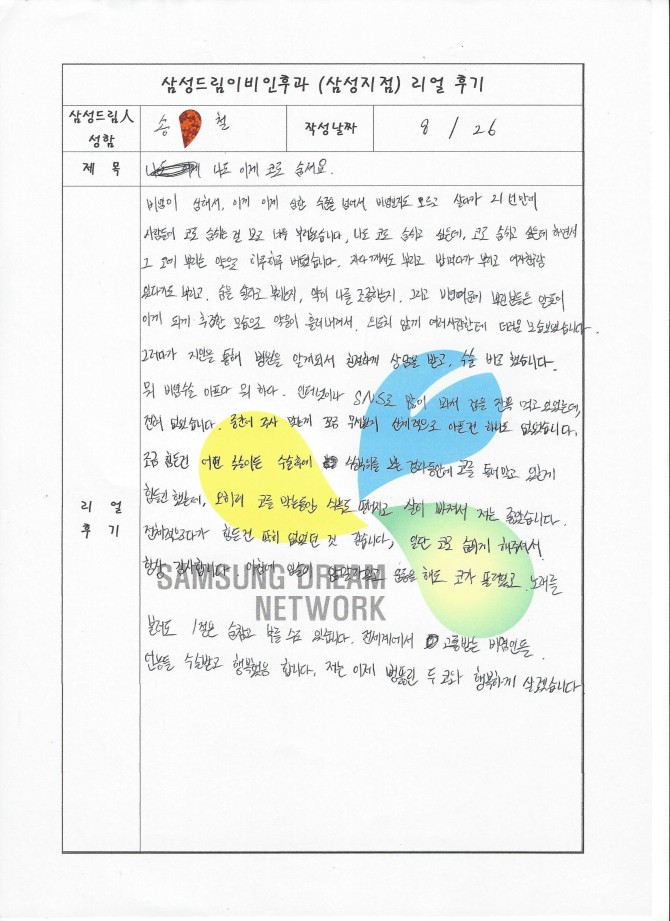 삼성드림이비인후과 (삼성지점) 리얼 후기
삼성드림人
성함
송 철
작성날짜
8 / 26
제 목
나도 이제 코로 숨셔요.
리 얼
후 기
비염이 심해서, 이게 이제 심한 수준을 넘어서 비염인지도 모르고 살다가 21년만에
사람들이 코로 숨쉬는 걸 보고 너무 부러웠습니다, 나도 코로 숨쉬고 싶은데, 코로 숨쉬고 싶은데 하면서
그 코에 뿌리는 약으로 하루하루 버텼습니다. 자다 깨서도 뿌리고 밥먹다가 뿌리고
뿌리고. 숨을 쉴라고 뿌리는지, 약이 나를 조종하는지. 그리고
이게 되게 추접한 모습으로 약물이 흘러내려서, 여러사람한테 더러운 모습보였습니다.
그러다가 지인을 통해 병원을 알게되서 친절하게 상담을 받고, 수술 받고 했습니다.
뭐 비염수술 아프다 뭐 하다. 인터넷이나 S.N.S로 많이 봐서 겁을 잔뜩 먹고 있었는데,
전혀 없었습니다. 조금 무서웠지 전체적으로 아픈건 하나도 없었습니다.
조금 힘든건 수술후에 코를 틀어막고 있는게
힘들긴 했는데, 오히려 코를 막는동안 식욕도 떨어지고 살이 빠져서 저는 좋았습니다.
전체적으로다가 힘든건 딱히 없었던 것 같습니다, 일단 코로 숨쉬게 해주셔서
항상 감사합니다 운동을 해도 코가 뚫려있고 노래를
불러도 1절은 숨참고 부를 수도 있습니다. 전세계에서 고통받는 비염인들
수술받고 행복했음 합니다. 저는 이제 뻥뚫린 두 코와 행복하게 살겠습니다
SAMSUNG DREAM
NETWORK